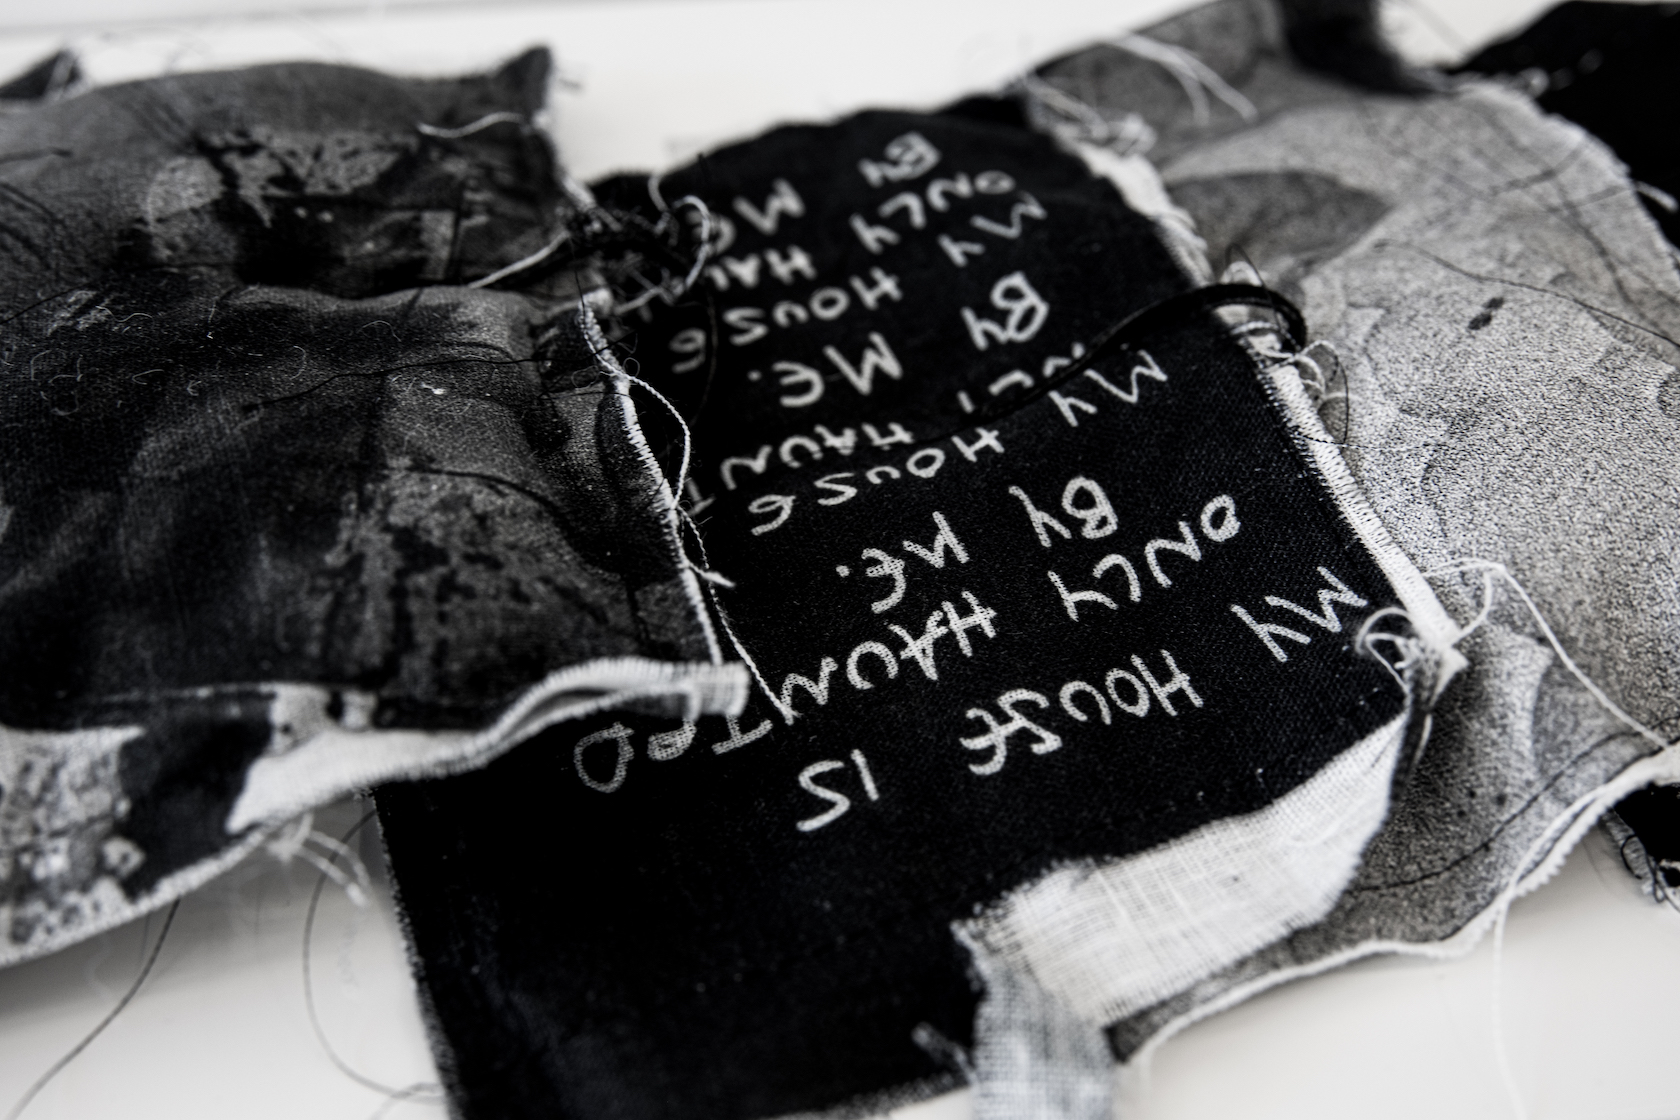 MY HOUSE IS
ONLY HAUNTED
BY ME.
MY HOUSE
HAUNT
BY ME.
MY HOUSE
ONLY HAU
BY ME